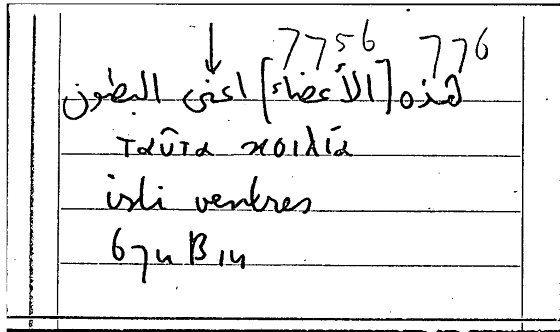 ↓ 7756 776
هذه [الأعضاء] اعنى البطون
ταῦτα κοιλία
isti ventres
674 B 14